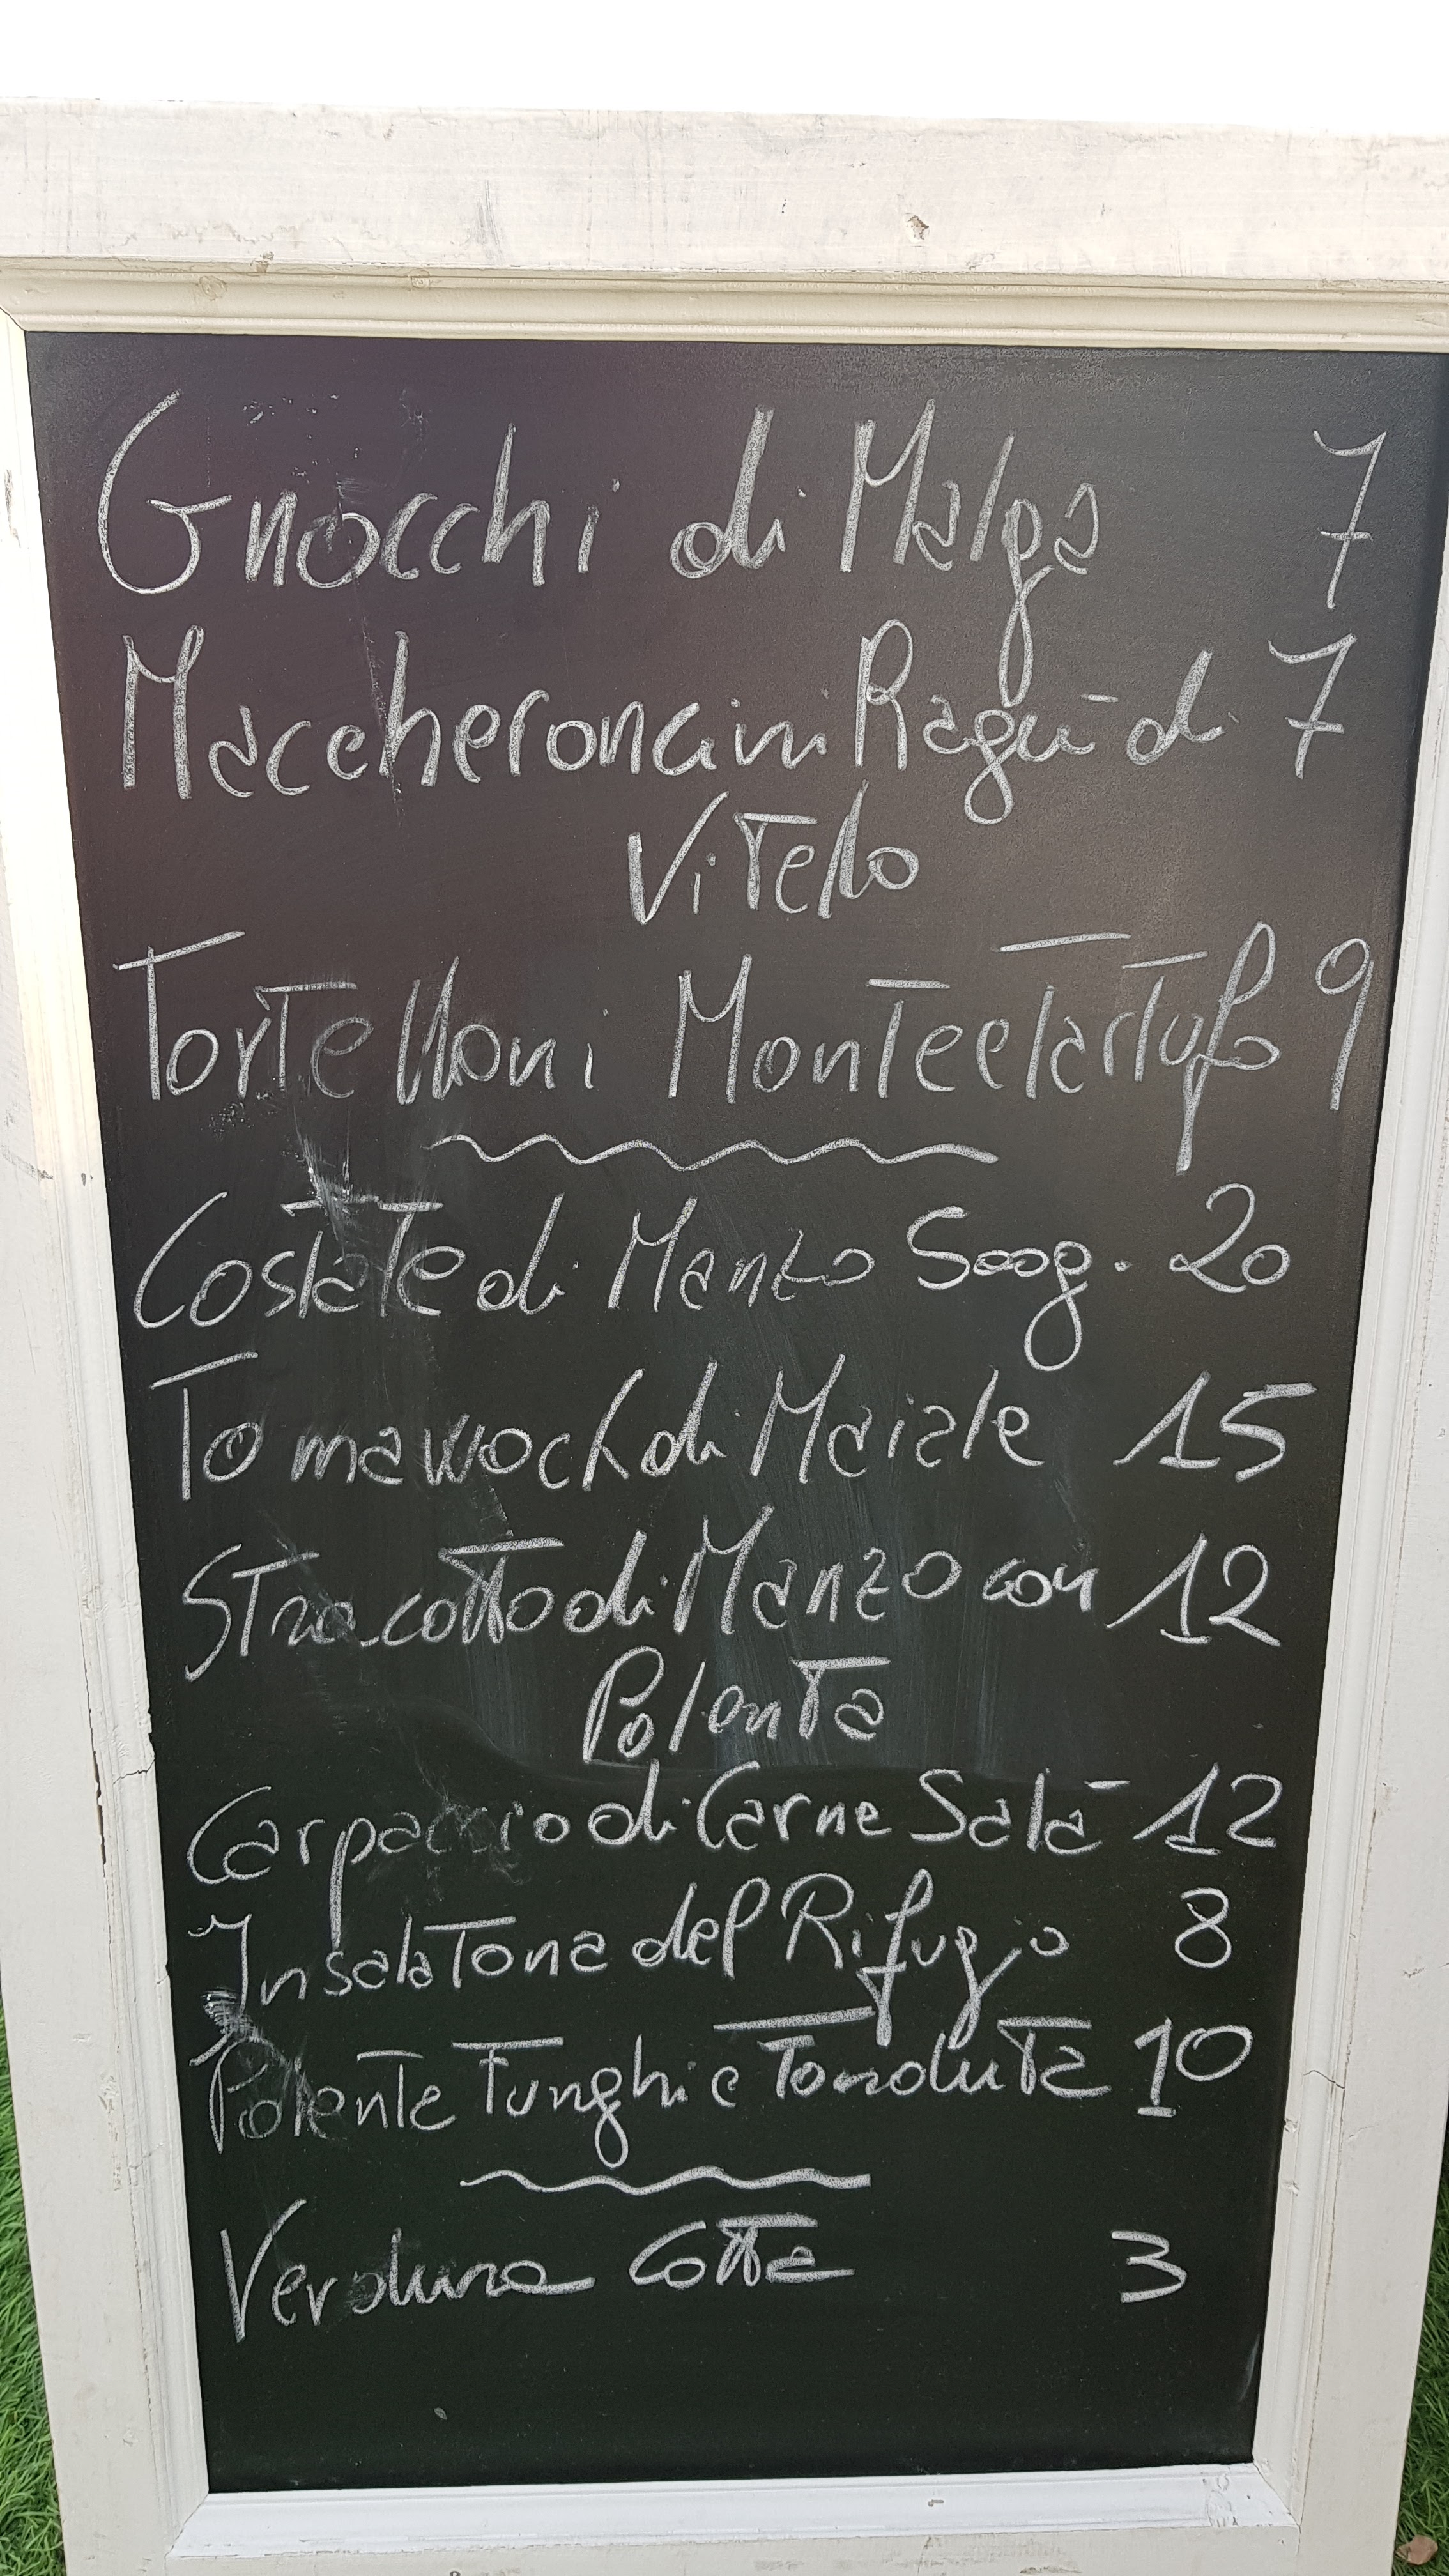 Gnocchi di Malga 7
Maccheroncini Ragù di 7
Vitello
Tortelloni Monte e tartufo 9
Costata di Manzo 500g. 20
Tomawock di Maiale 15
Stracotto di Manzo con 12
Polenta
Carpaccio di Carne Salà 12
Insalatona del Rifugio 8
Polenta Funghi e Fonduta 10
Verdura Cotta 3